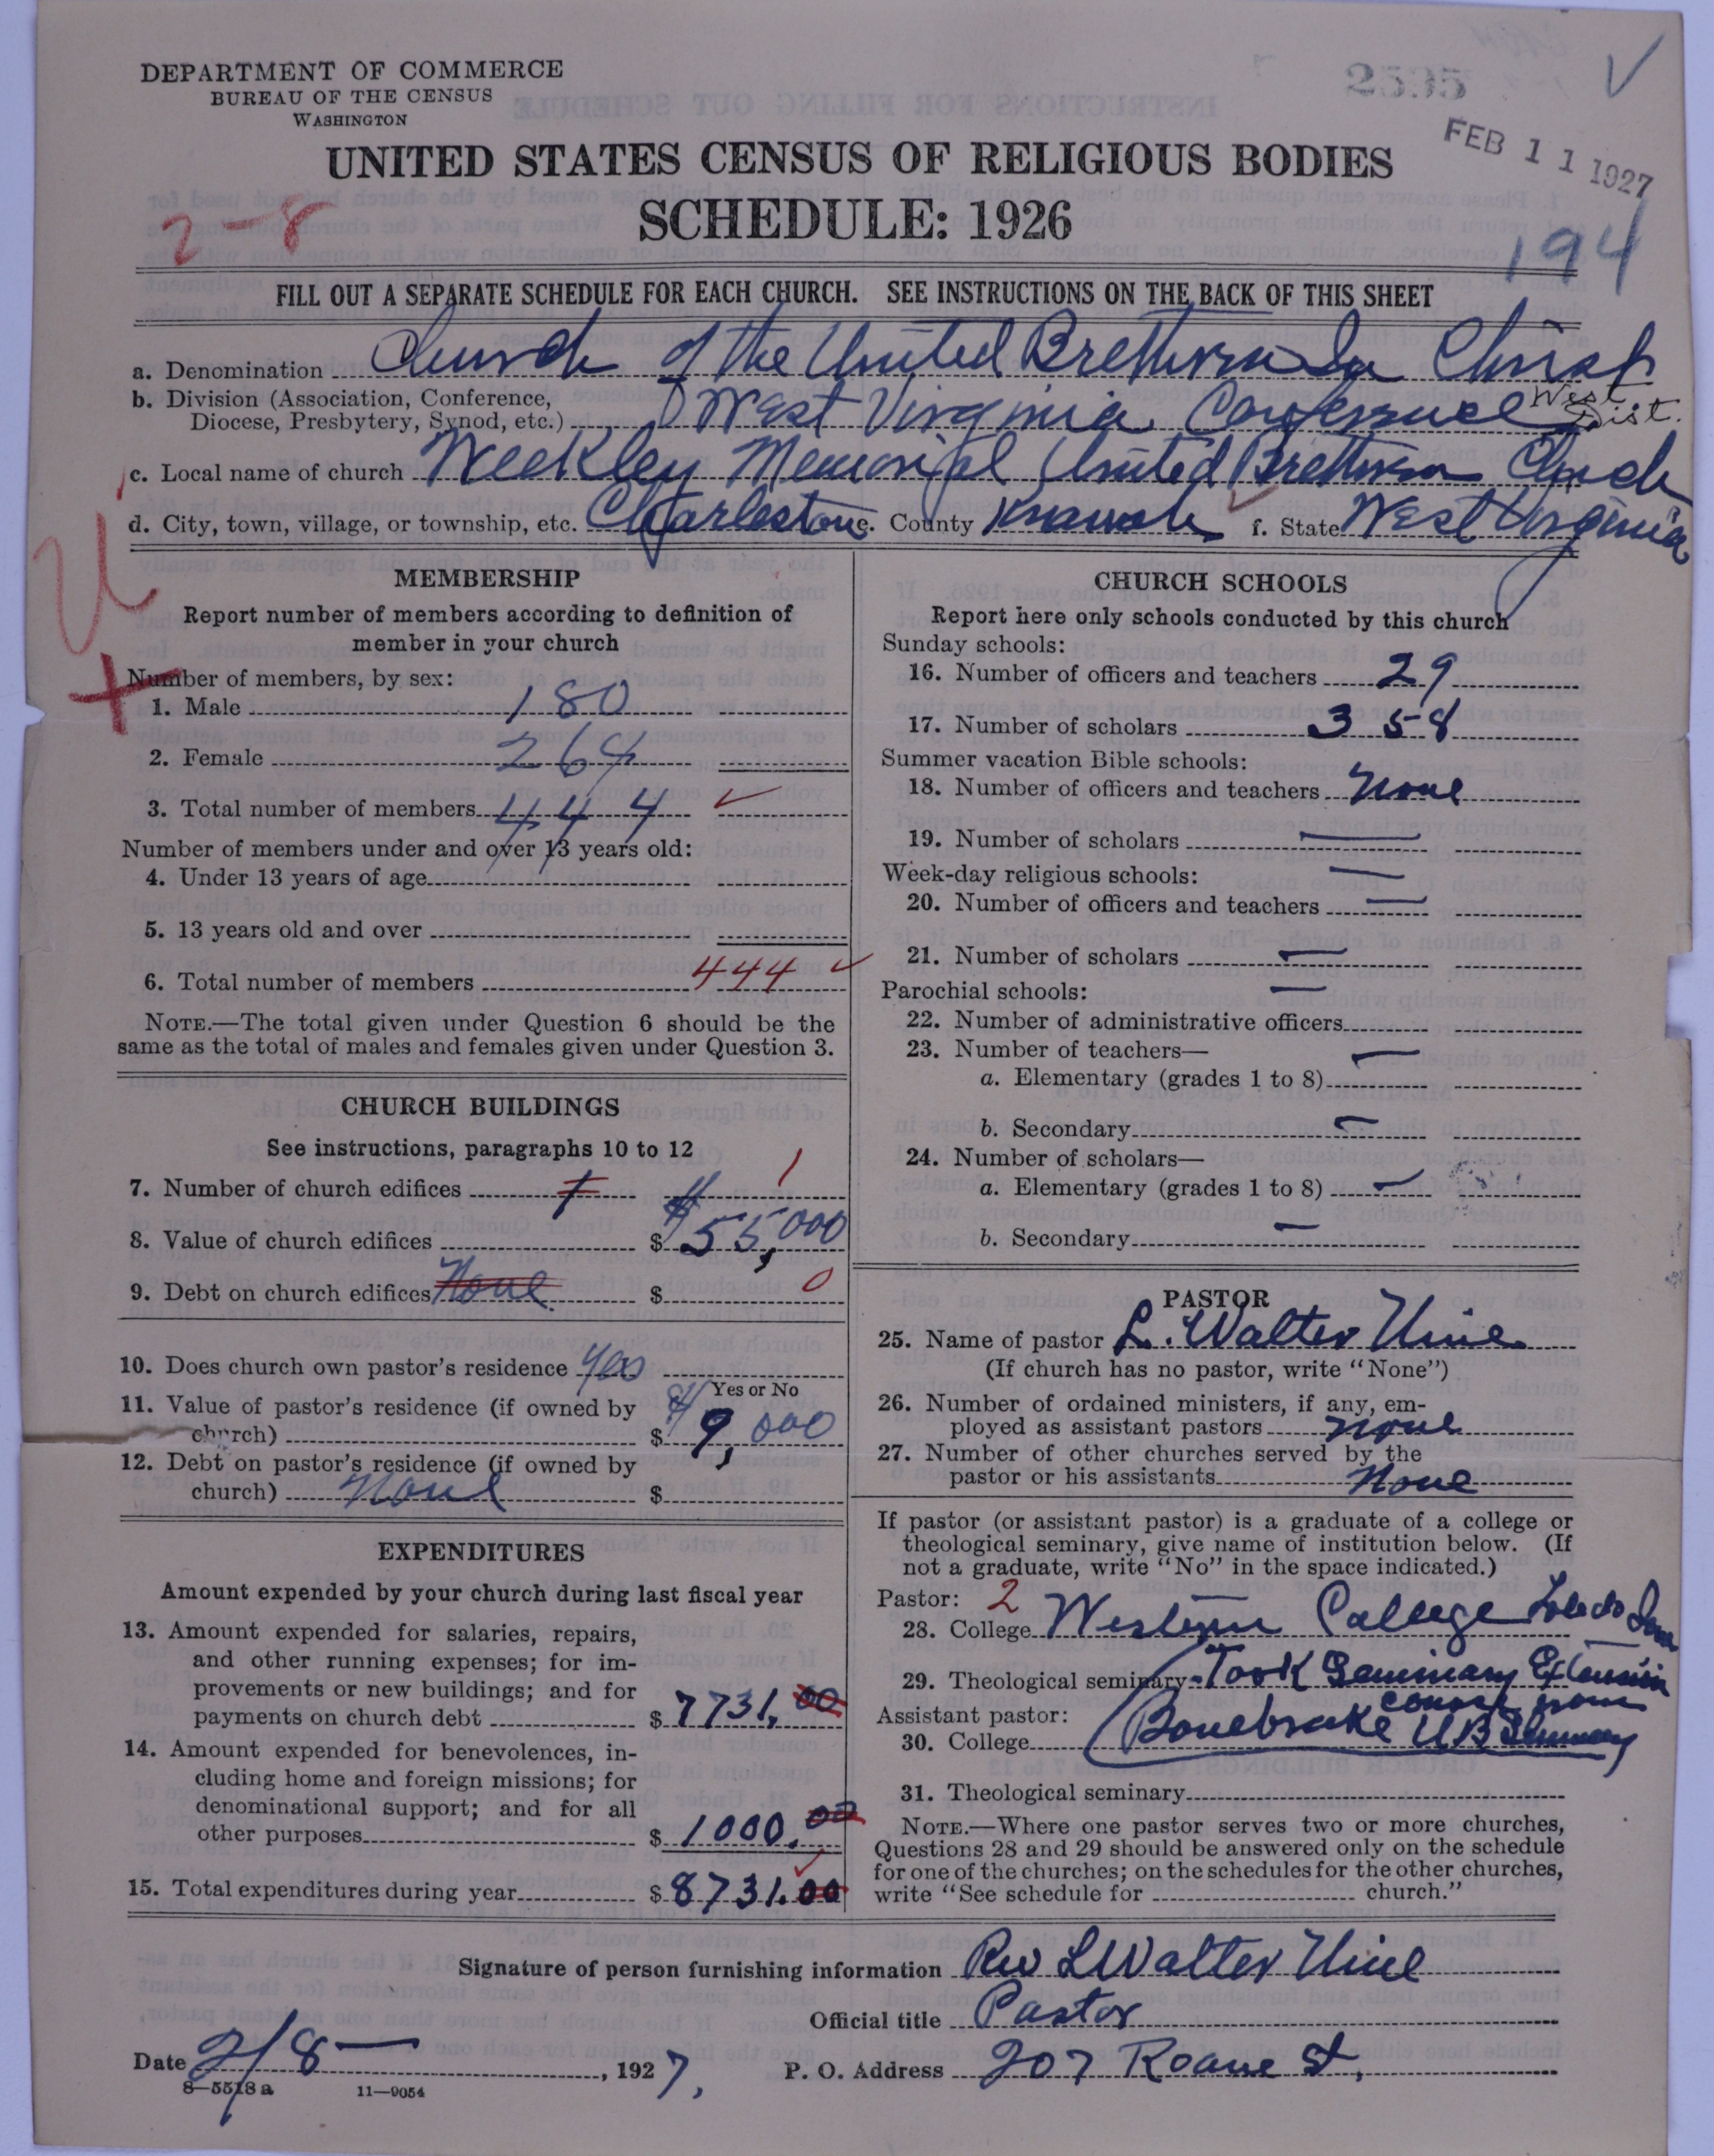 DEPARTMENT OF COMMERCE
BUREAU OF THE CENSUS
WASHINGTON
2595
FEB 11 1927
UNITED STATES CENSUS OF RELIGIOUS BODIES
SCHEDULE: 1926
2-8
194
FILL OUT A SEPARATE SCHEDULE FOR EACH CHURCH. SEE INSTRUCTIONS ON THE BACK OF THIS SHEET
a. Denomination Church of the United Brethren In Christ
b. Division (Association, Conference, Diocese, Presbytery, Synod, etc.) West Virginia Conference West Dist.
c. Local name of church Weekley Memorial United Brethren Church
d. City, town, village, or township, etc. Charleston e. County Knawah f. State West Virginia
MEMBERSHIP
Report number of members according to definition of
member in your church
Number of members, by sex:
1. Male 180
2. Female 264
3. Total number of members 444
Number of members under and over 13 years old:
4. Under 13 years of age
5. 13 years old and over
6. Total number of members 444
NOTE.—The total given under Question 6 should be the
same as the total of males and females given under Question 3.
CHURCH BUILDINGS
See instructions, paragraphs 10 to 12
7. Number of church edifices 1 1
8. Value of church edifices $ $55,000
9. Debt on church edifices None $ 0
10. Does church own pastor's residence Yes
Yes or No
11. Value of pastor's residence (if owned by
church) $ $9,000
12. Debt on pastor's residence (if owned by
church) None $
EXPENDITURES
Amount expended by your church during last fiscal year
13. Amount expended for salaries, repairs,
and other running expenses; for im-
provements or new buildings; and for
payments on church debt $ 7731.00
14. Amount expended for benevolences, in-
cluding home and foreign missions; for
denominational support; and for all
other purposes $ 1000.00
15. Total expenditures during year $ 8731.00
CHURCH SCHOOLS
Report here only schools conducted by this church
Sunday schools:
16. Number of officers and teachers 29
17. Number of scholars 358
Summer vacation Bible schools:
18. Number of officers and teachers None
19. Number of scholars —
Week-day religious schools: —
20. Number of officers and teachers —
21. Number of scholars —
Parochial schools: —
22. Number of administrative officers
23. Number of teachers— —
a. Elementary (grades 1 to 8)
b. Secondary —
24. Number of scholars—
a. Elementary (grades 1 to 8) —
b. Secondary —
PASTOR
25. Name of pastor L. Walter
(If church has no pastor, write "None")
26. Number of ordained ministers, if any, em-
ployed as assistant pastors None
27. Number of other churches served by the
pastor or his assistants None
If pastor (or assistant pastor) is a graduate of a college or
theological seminary, give name of institution below. (If
not a graduate, write "No" in the space indicated.)
Pastor: 2
28. College Western College Toledo Iowa
29. Theological seminary Took Seminary Extension
course from
Assistant pastor:
30. College Bonebrake U B Seminary
31. Theological seminary
NOTE.—Where one pastor serves two or more churches,
Questions 28 and 29 should be answered only on the schedule
for one of the churches; on the schedules for the other churches,
write "See schedule for church."
Signature of person furnishing information Rev L Walter
Official title Pastor
Date 2/8—, 1927, P. O. Address 207 Roane St,
8—5518 a 11—9054